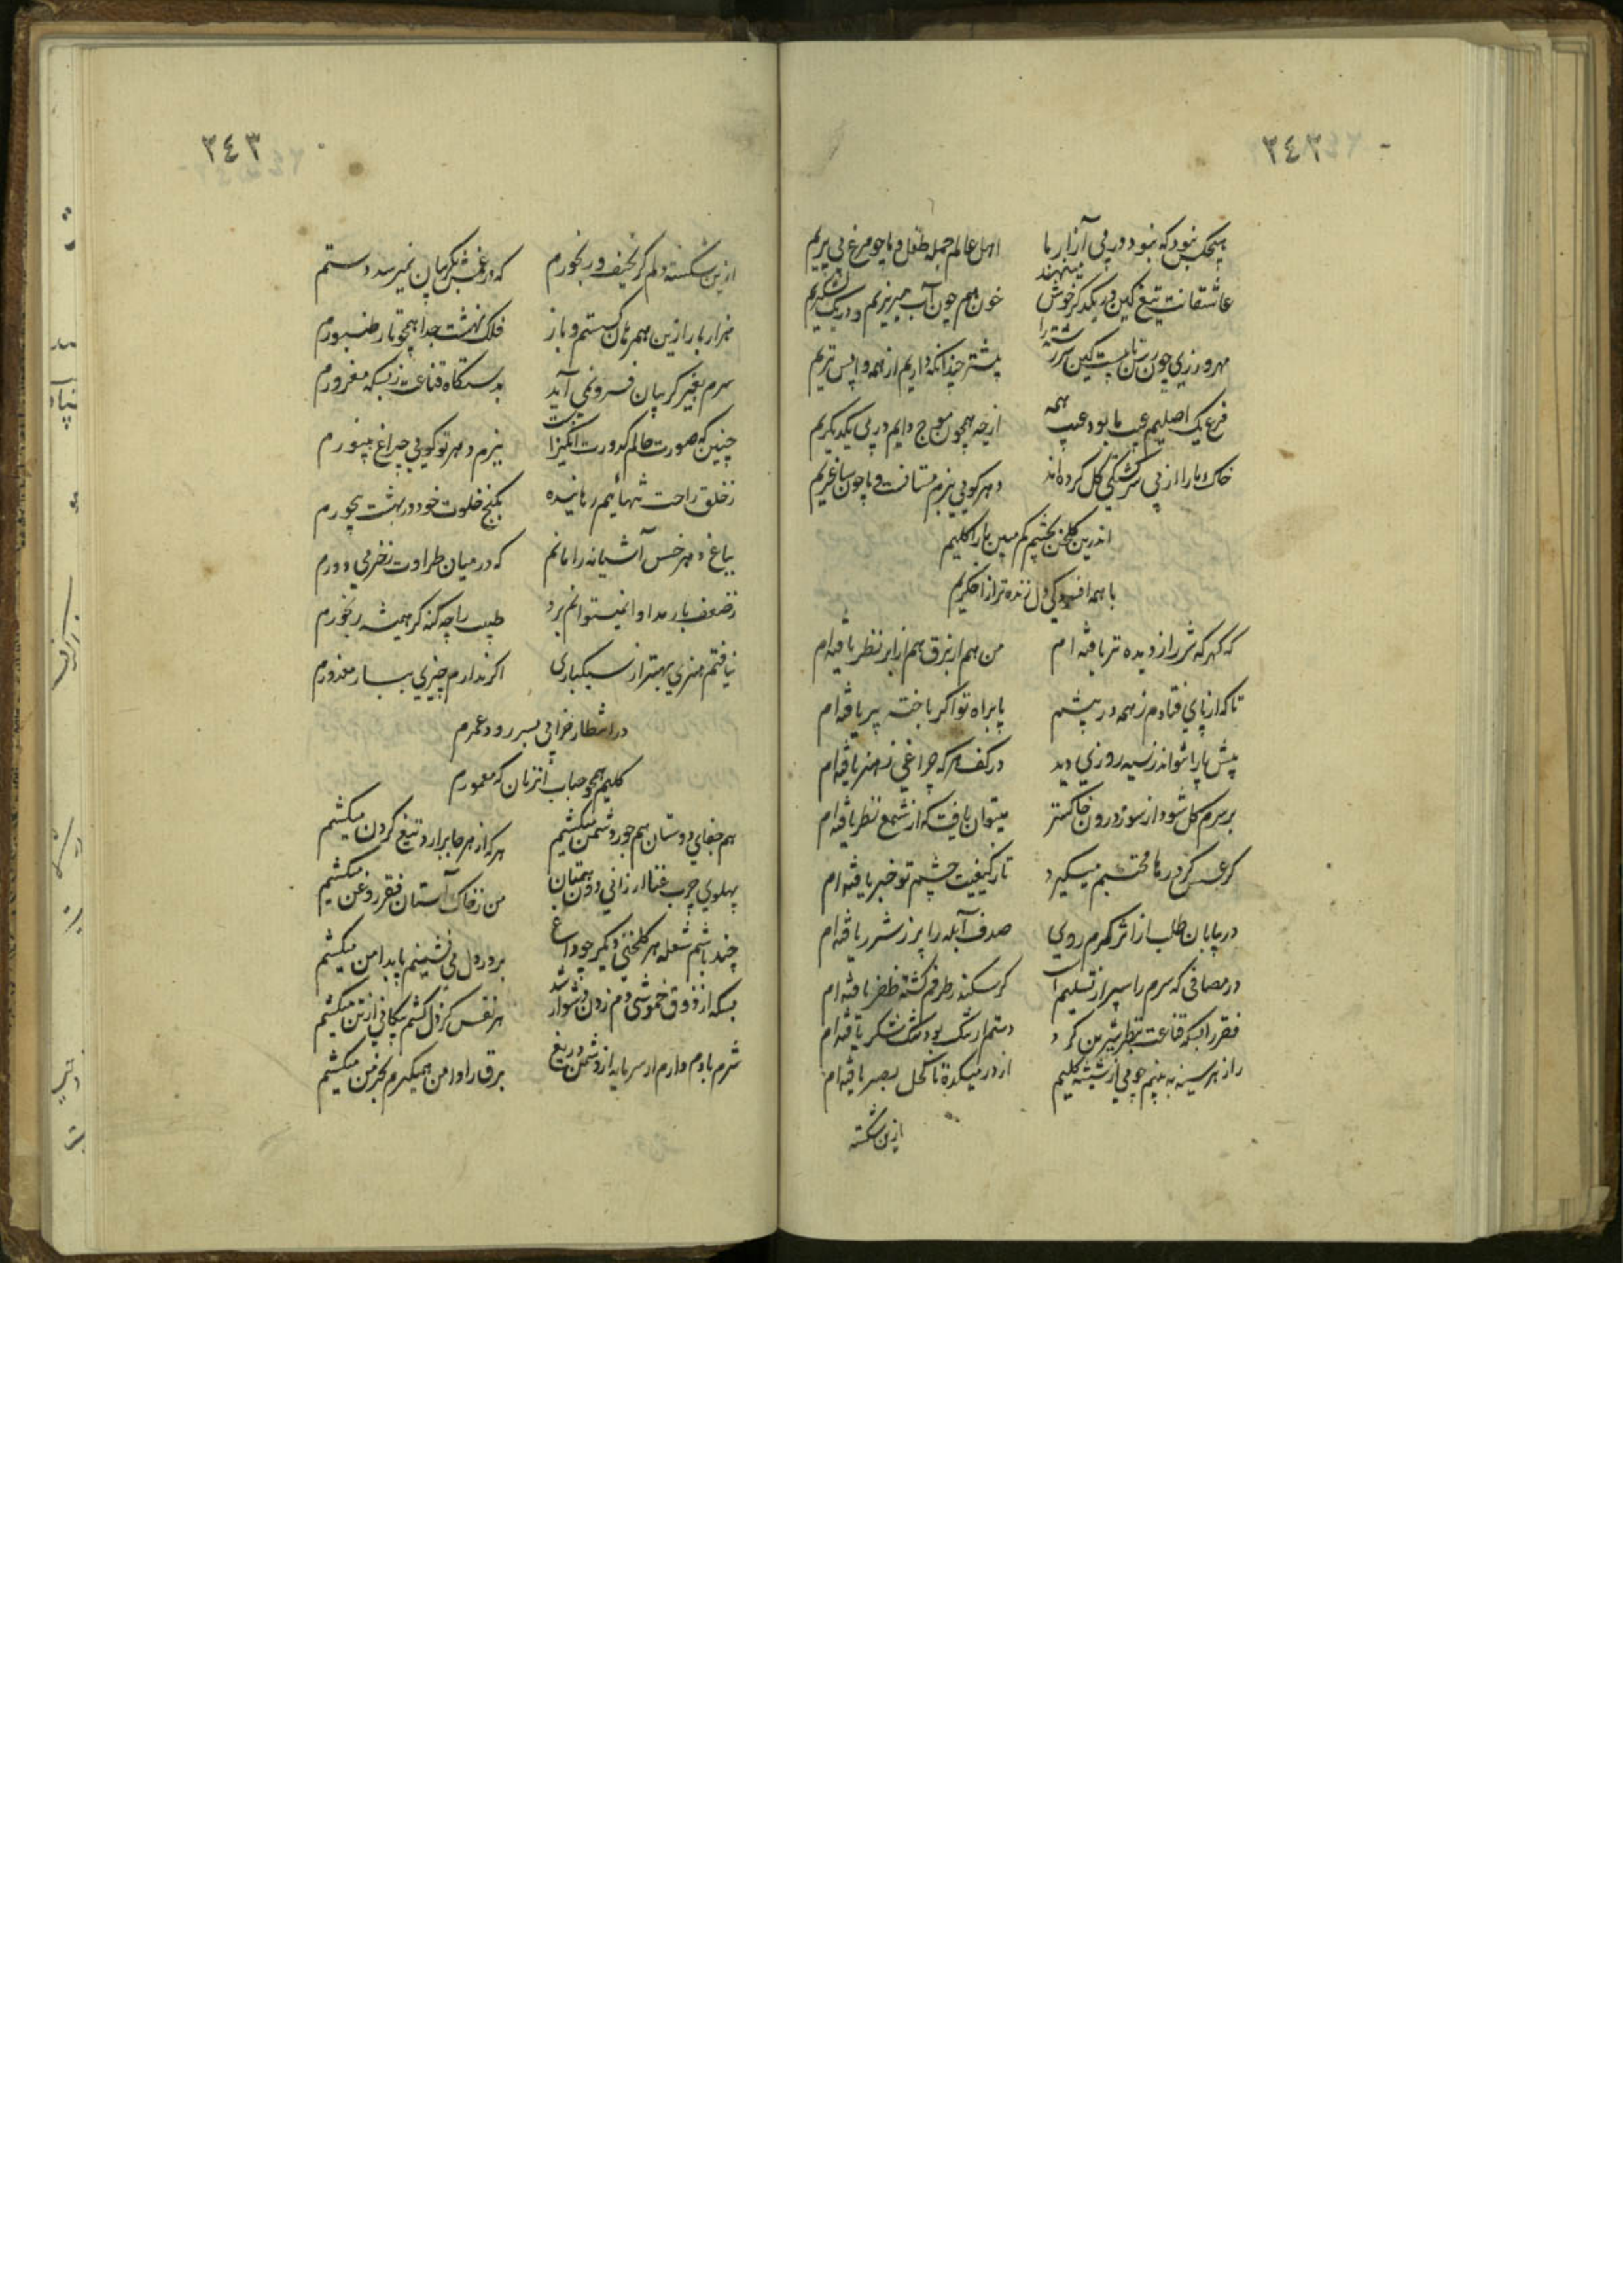 ٢٤٢
هیچکس نبود که نبود در پی آزار ما
اهل عالم جمله طفل و ما چو مرغ بی پریم
عاشقانت تیغ کین در یکدگر خوش مینهند
خون هم چون آب میریزیم و در یک لشکریم
پیشتر چندانکه داریم از همه واپس تریم
فرع یک اصلیم عیب ما بود عیب همه
ازچه همچون موج دایم در پی یکدیگریم
خاک ما را از پی سرگشتگی گل کرده اند
دهر گویی بزم مستانست و ما چون ساغریم
اندرین گلخن بچشم کم مبین ما را کلیم
با همه افسردگی دل زنده تر از اخگریم
که گهر که شرر از دیده تر یافته ام
من هم از برق هم از ابر نظر یافته ام
تا که از پای فتادم ز همه در پیشم
پا براه تو اگر باخته پر یافته ام
پیش پا را نتواند ز سیه روزی دید
در کف هر که چراغی ز هنر یافته ام
بر سرم گل شود از سوز درون خاکستر
میتوان یافت که از شمع نظر یافته ام
گر عسس گر درها محتسبم میگیرد
تا ز کیفیت چشم تو خبر یافته ام
در بیابان طلب از اثر گرم روی
صدف آبله را پر ز شرر یافته ام
در مصافی که سرم را سپر از تسلیم است
گر سکندر طرفم گشته ظفر یافته ام
فقر را بسکه قناعت بنظر شیرین کرد
دستم ار تنگ بود تنگ شکر یافته ام
راز هر سینه به بینم چو می از شیشه کلیم
از در میکده تا کحل بصر یافته ام
ازین شکسته
٢٤٣
ازین شکسته دلم گر نحیف و رنجورم
که در غمش بگریبان نمیرسد دستم
هزار بار ازین همرهان گسستم و باز
فلک نهشت جدا همچو تار طنبورم
سرم بغیر گریبان فرو نمی آید
بدستگاه قناعت ز بسکه مغرورم
چنین که صورت حالم کدورت انگیزست
بزم دهر تو گویی چراغ بینورم
ز خلق راحت تنهائیم رهانیده
بکنج خلوت خود در بهشت بیحورم
بباغ دهر خس آشیانه را مانم
که در میان طراوت ز خرمی دورم
ز ضعف بار مداوا نمیتوانم برد
طبیب را چه کنه گر همیشه رنجورم
نیافتم هنری بهتر از سبکباری
اگر ندارم چیزی بساز معذورم
در انتظار خرابی بسر رود عمرم
کلیم همچو حباب آنزمان که معمورم
هم جفای دوستان هم جور دشمن میکشم
هر که از هر جا برارد تیغ گردن میکشم
پهلوی چرب غنا ارزانی دون همتان
من ز خاک آستان فقر روغن میکشم
چند باشم شعله هر گلخنی دیگر چو داغ
بر در دل می نشینم پا بدامن میکشم
بسکه از ذوق خموشی دم زدن دشوار شد
هر نفس کز دل کشم پیکانی از تن میکشم
شرم بادم دارم ار سرمایه از دشمن دریغ
برق را دامن همیگیرم بخرمن میکشم